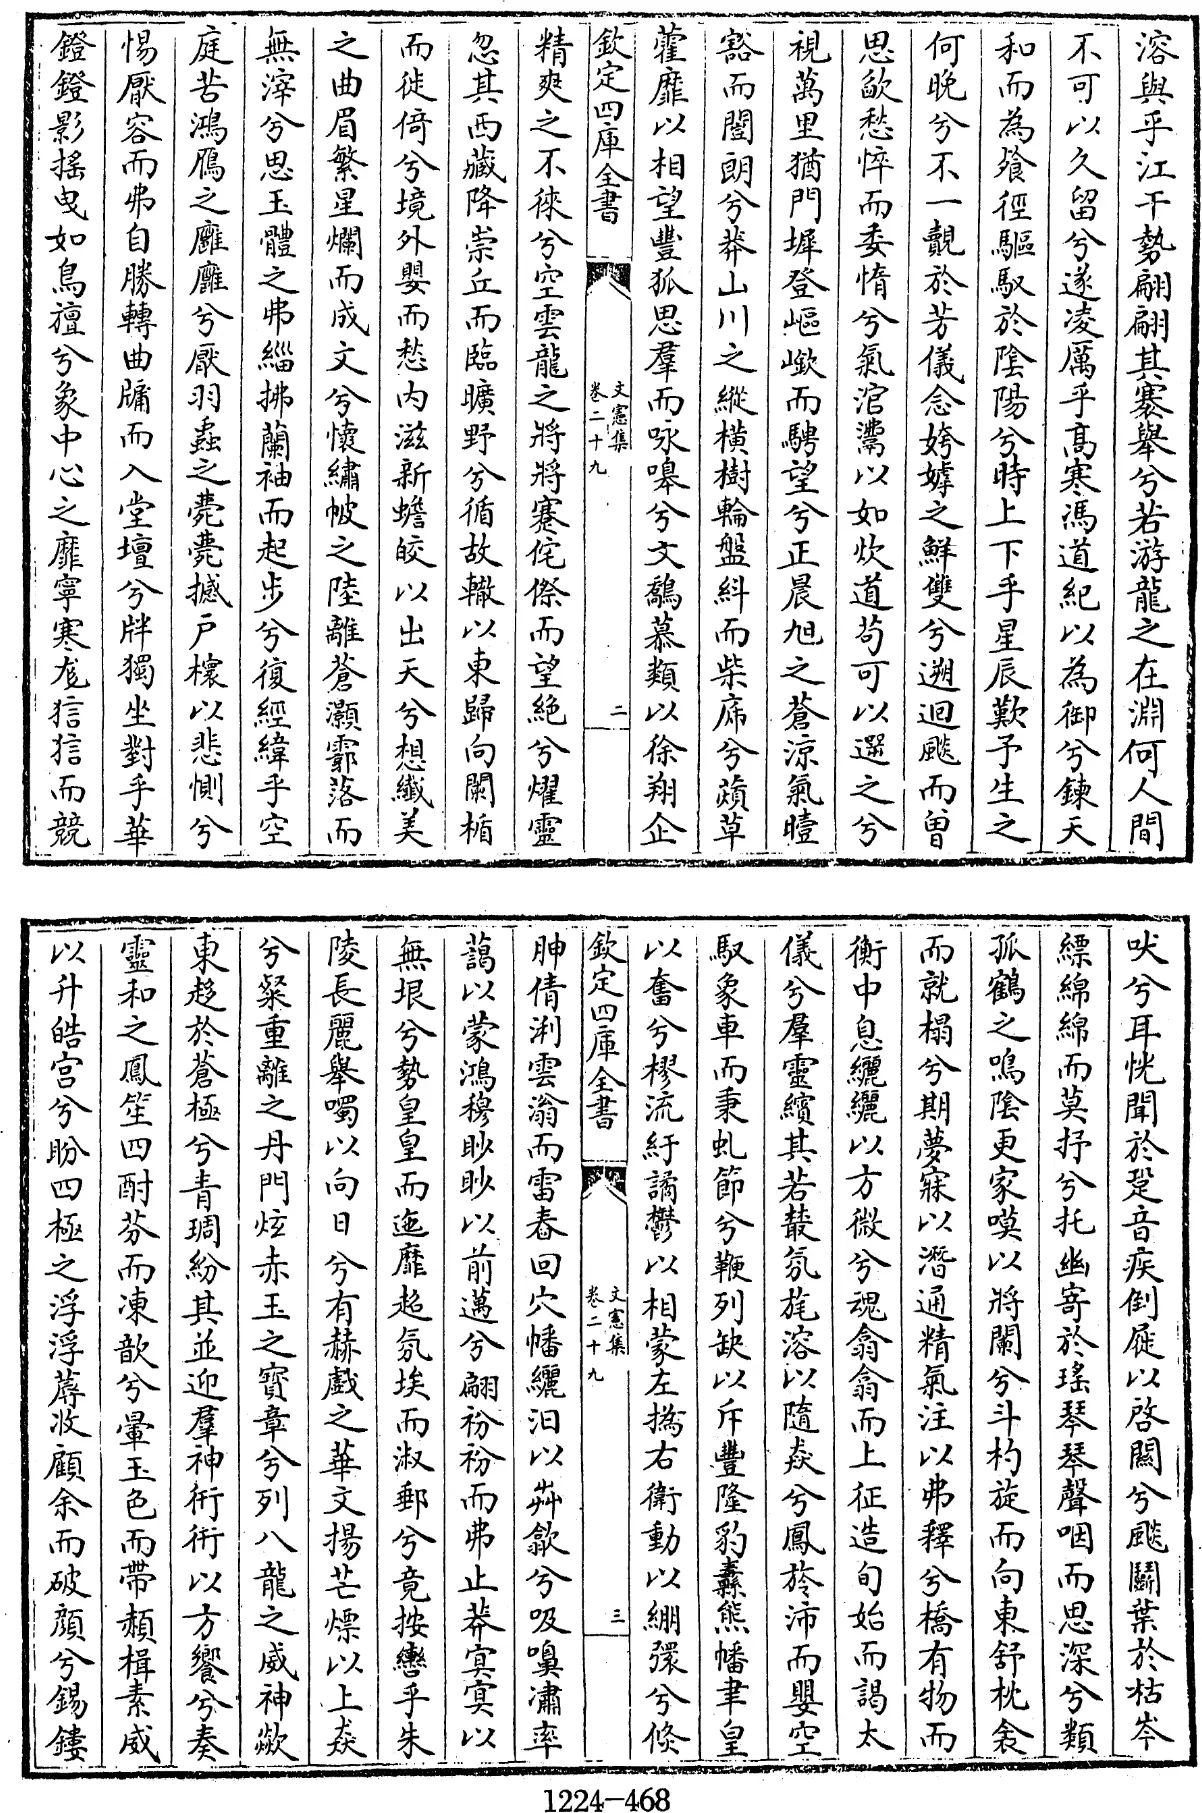 溶與乎江干勢翩翩其褰舉兮若游龍之在淵何人間
不可以久留兮遂凌厲乎髙寒馮道紀以為御兮鍊天
和而為飱徑驅馭於陰陽兮時上下乎星辰歎予生之
何晚兮不一覿於芳儀念姱嫭之鮮雙兮遡迴颷而曾
思歈愁悴而委惰兮氣涫灊以如炊道茍可以選之兮
視萬里猶門墀登嶇嶔而騁望兮正晨旭之蒼涼氣曀
豁而闓朗兮莽山川之縱橫樹輪盤糾而柴虒兮薠草
藿靡以相望豐狐思羣而咏嘷兮文鷮慕類以徐翔企
欽定四庫全書
文憲集
卷二十九
二
精爽之不徠兮空雲龍之將將蹇侘傺而望絶兮燿靈
忽其西藏降崇丘而臨曠野兮循故轍以東歸向闌楯
而徙倚兮境外嬰而愁内滋新蟾皎以出天兮想纖美
之曲眉繁星爛而成文兮懷繡帔之陸離蒼灝霩落而
無滓兮思玉體之弗緇拂蘭袖而起步兮復經緯乎空
庭苦鴻鴈之雝雝兮厭羽蟲之薨薨撼戸櫰以悲惻兮
惕厭容而弗自勝轉曲牖而入堂壇兮牉獨坐對乎華
鐙鐙影摇曳如鳥䆄兮象中心之靡寧寒尨狺狺而競
吠兮耳恍聞於跫音疾倒屣以啓闗兮颷鬭葉於枯岑
縹綿綿而莫抒兮托幽寄於瑤琴琴聲咽而思深兮類
孤鶴之鳴陰更家嘆以將闌兮斗杓旋而向東舒枕衾
而就榻兮期夢寐以潛通精氣注以弗釋兮橋有物而
衡中息纚纚以方微兮魂翕翕而上征造旬始而謁太
儀兮羣靈繽其若藂氛旄溶以隨焱兮鳳旍沛而嬰空
馭象車而秉虬節兮鞭列缺以斥豐隆豹纛熊幡聿皇
以奮兮樛流紆譎鬱以相蒙左撝右衛動以繃彋兮倐
欽定四庫全書
文憲集
卷二十九
三
胂倩浰雲滃而雷舂回穴幡纚汨以茻歙兮吸嘷潚率
藹以蒙鴻穆眇眇以前邁兮翩衯衯而弗止莽寞寞以
無垠兮勢皇皇而迤靡超氛埃而淑郵兮竟按轡乎朱
陵長麗舉噣以向日兮有赫戲之華文揚芒熛以上焱
兮粲重離之丹門炫赤玉之寳章兮列八龍之威神歘
東趍於蒼極兮青琱紛其並迎羣神衎衎以方饗兮奏
靈和之鳳笙四酎芬而凍歆兮暈玉色而帶頳楫素威
以升皓宫兮盼四極之浮浮蓐收顧余而破顔兮錫鏤
1224-468